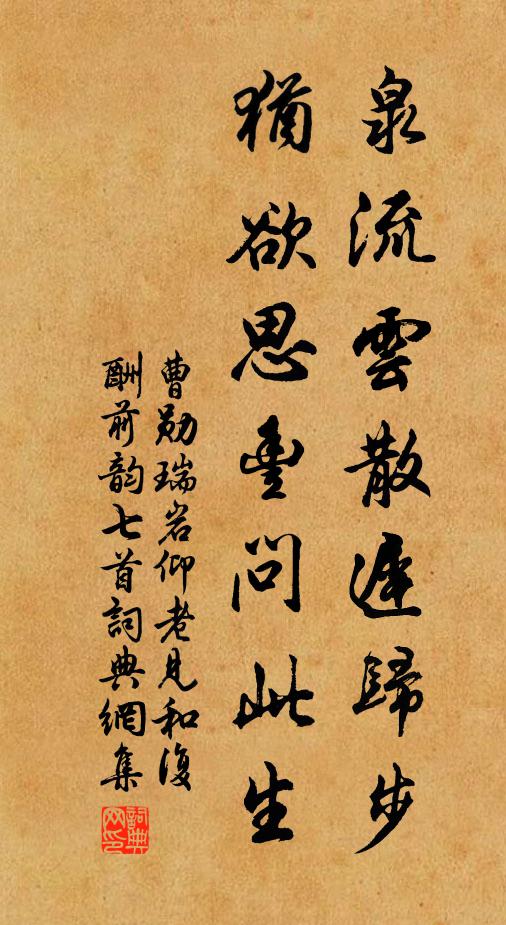 泉流雲散遲歸步
猶欲思豐問此生
曹勛瑞岩仰老見和復
酬前韵七首詞典網集
詞典网印